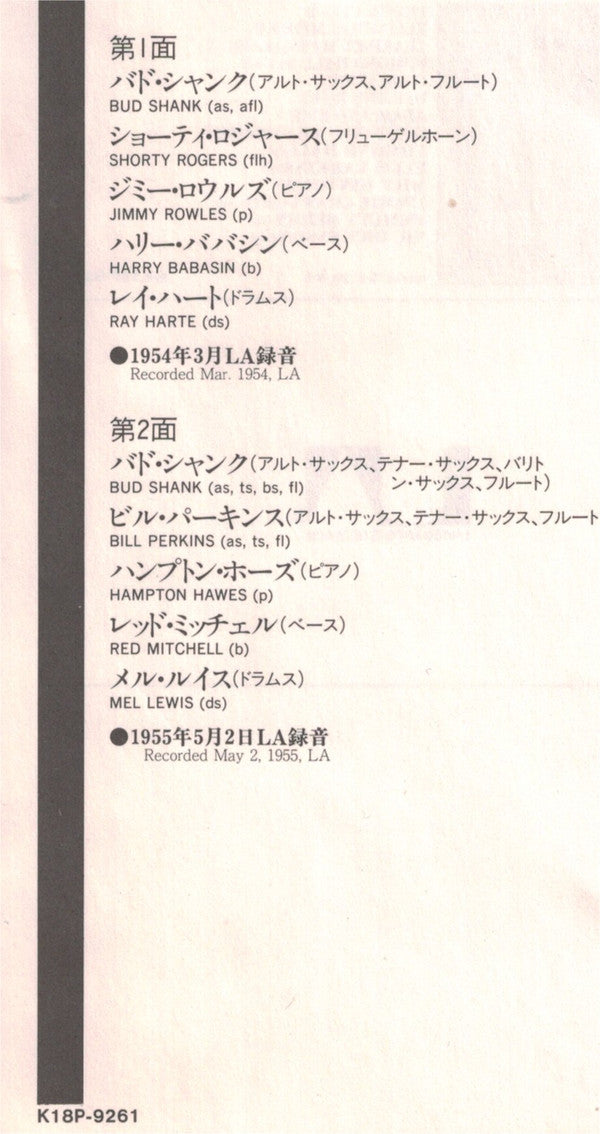 第1面
バド・シャンク(アルト・サックス、アルト・フルート)
BUD SHANK (as, afl)
ショーティ・ロジャース(フリューゲルホーン)
SHORTY ROGERS (flh)
ジミー・ロウルズ(ピアノ)
JIMMY ROWLES (p)
ハリー・ババシン(ベース)
HARRY BABASIN (b)
レイ・ハート(ドラムス)
RAY HARTE (ds)
●1954年3月LA録音
Recorded Mar. 1954, LA
第2面
バド・シャンク(アルト・サックス、テナー・サックス、バリト
ン・サックス、フルート)
BUD SHANK (as, ts, bs, fl)
ビル・パーキンス(アルト・サックス、テナー・サックス、フルート
BILL PERKINS (as, ts, fl)
ハンプトン・ホーズ(ピアノ)
HAMPTON HAWES (p)
レッド・ミッチェル(ベース)
RED MITCHELL (b)
メル・ルイス(ドラムス)
MEL LEWIS (ds)
●1955年5月2日LA録音
Recorded May 2, 1955, LA
K18P-9261